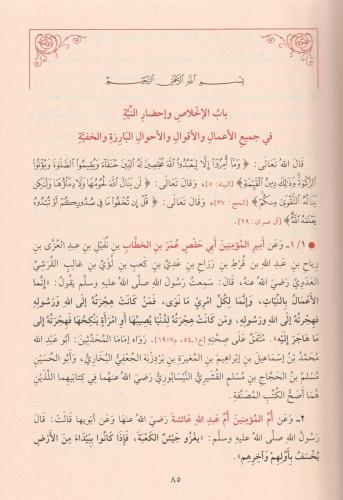 بِسْمِ اللهِ الرَّحْمٰنِ الرَّحِيْمِ
بابُ الإخْلاصِ وإحضارِ النِّيَّةِ
في جميعِ الأعمالِ والأقوالِ والأحوالِ البارِزَةِ والخفيَّةِ
قَالَ اللهُ تَعَالَى: ﴿ وَمَآ أُمِرُوٓاْ إِلَّا لِيَعْبُدُواْ ٱللَّهَ مُخْلِصِينَ لَهُ ٱلدِّينَ حُنَفَآءَ وَيُقِيمُواْ ٱلصَّلَوٰةَ وَيُؤْتُواْ
ٱلزَّكَوٰةَ وَذَٰلِكَ دِينُ ٱلْقَيِّمَةِ ﴾ [البينة: ٥]، وَقَالَ تَعَالَى: ﴿ لَن يَنَالَ ٱللَّهَ لُحُومُهَا وَلَا دِمَآؤُهَا وَلَٰكِن
يَنَالُهُ ٱلتَّقْوَىٰ مِنكُمْ ﴾ [الحج: ٣٧]، وَقَالَ تَعَالَى: ﴿ قُلْ إِن تُخْفُواْ مَا فِى صُدُورِكُمْ أَوْ تُبْدُوهُ
يَعْلَمْهُ ٱللَّهُ ﴾ [آل عمران: ٢٩].
● ١/١ـ وَعَن أَمِيرِ المُؤْمِنِينَ أَبِي حَفْصٍ عُمَرَ بنِ الخطَّابِ بنِ نُفَيْلِ بنِ عَبدِ العُزَّى بنِ
رِيَاحِ بنِ عَبدِ اللهِ بنِ قُرْطِ بنِ رَزَاحِ بنِ عَدِيِّ بنِ كَعبِ بنِ لُؤَيِّ بنِ غالِبٍ القُرَشِيِّ
العَدَوِيِّ رَضيَ اللهُ عنهُ، قَالَ: سَمِعتُ رَسُولَ اللهِ صلَّى اللهُ عليهِ وسلَّم يَقُولُ: «إنَّمَا
الأعْمَالُ بالنِّيَّاتِ، وَإنَّمَا لِكُلِّ امْرِئٍ مَا نَوَى، فَمَنْ كَانَتْ هِجْرَتُهُ إلى اللهِ وَرَسُولِهِ
فَهِجْرَتُهُ إلى اللهِ وَرَسُولِهِ، ومَن كَانَتْ هِجْرَتُهُ لدُنْيَا يُصِيبُهَا أو امْرَأَةٍ يَنكِحُهَا فَهِجْرَتُهُ إلى
مَا هَاجَرَ إلَيْهِ». مُتَّفَقٌ عَلَى صِحَّتِهِ [خ١،٥٤، م١٩٠٧]. رَوَاهُ إمَامَا المُحَدِّثِينَ: أبو عَبدِ اللهِ
مُحَمَّدُ بنُ إسْمَاعِيلَ بنِ إبْرَاهِيمَ بنِ المُغِيرَةِ بنِ بَرْدِزْبَه الجُعْفِيُّ البُخَارِيُّ، وَأبُو الحُسَيْنِ
مُسْلِمُ بنُ الحَجَّاجِ بنِ مُسْلِمٍ القُشَيْرِيُّ النَّيْسَابُورِيُّ رَضيَ اللهُ عنهُما في كِتابيهما اللَّذَيْنِ
هُما أصَحُّ الكُتُبِ المُصَنَّفةِ.
٢ـ وَعَن أُمِّ المُؤْمِنِينَ أُمِّ عَبْدِ اللهِ عَائشةَ رَضيَ اللهُ عنها وعَن أبَوَيها قَالَتْ: قَالَ
رَسُولُ اللهِ صَلَّى اللهُ عليهِ وسلَّم: «يَغْزُو جَيْشٌ الكَعْبَةَ، فَإذا كَانُوا بِبَيْدَاءَ مِنَ الأَرْضِ
يُخْسَفُ بِأَوَّلِهِمْ وَآخِرِهِمْ».
٨٥